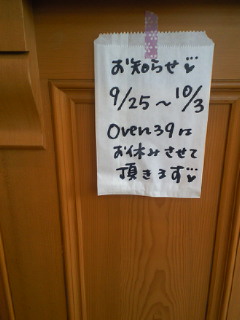 お知らせ♡
9/25〜10/3
Oven39は
お休みさせて
頂きます♡